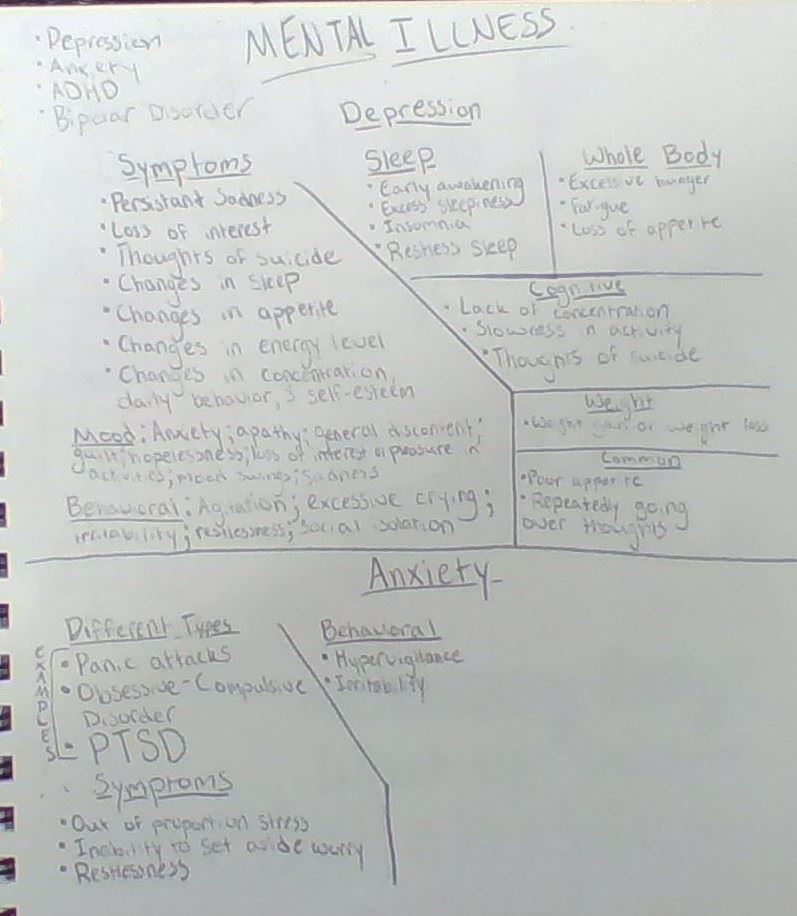 MENTAL ILLNESS
• Depression
• Anxiety
• ADHD
• Bipolar Disorder
Depression
Symptoms
• Persistant Sadness
• Loss of interest
• Thoughts of suicide
• Changes in sleep
• Changes in appetite
• Changes in energy level
• Changes in concentration,
daily behavior, & self-esteem
Mood: Anxiety; apathy; general discontent;
guilt; hopelessness; loss of interest or pleasure in
activities; mood swings; sadness
Behavioral: Agitation; excessive crying;
irritability; restlessness; social isolation
Sleep
• Early awakening
• Excess sleepiness
• Insomnia
• Restless sleep
Whole Body
• Excessive hunger
• Fatigue
• Loss of appetite
Cognitive
• Lack of concentration
• Slowness in activity
• Thoughts of suicide
Weight
• Weight gain or weight loss
Common
• Poor appetite
• Repeatedly going
over thoughts
Anxiety
Different Types
EXAMPLES
• Panic attacks
• Obsessive-Compulsive
Disorder
• PTSD
Symptoms
• Out of proportion stress
• Inability to set aside worry
• Restlessness
Behavioral
• Hypervigilance
• Irritability